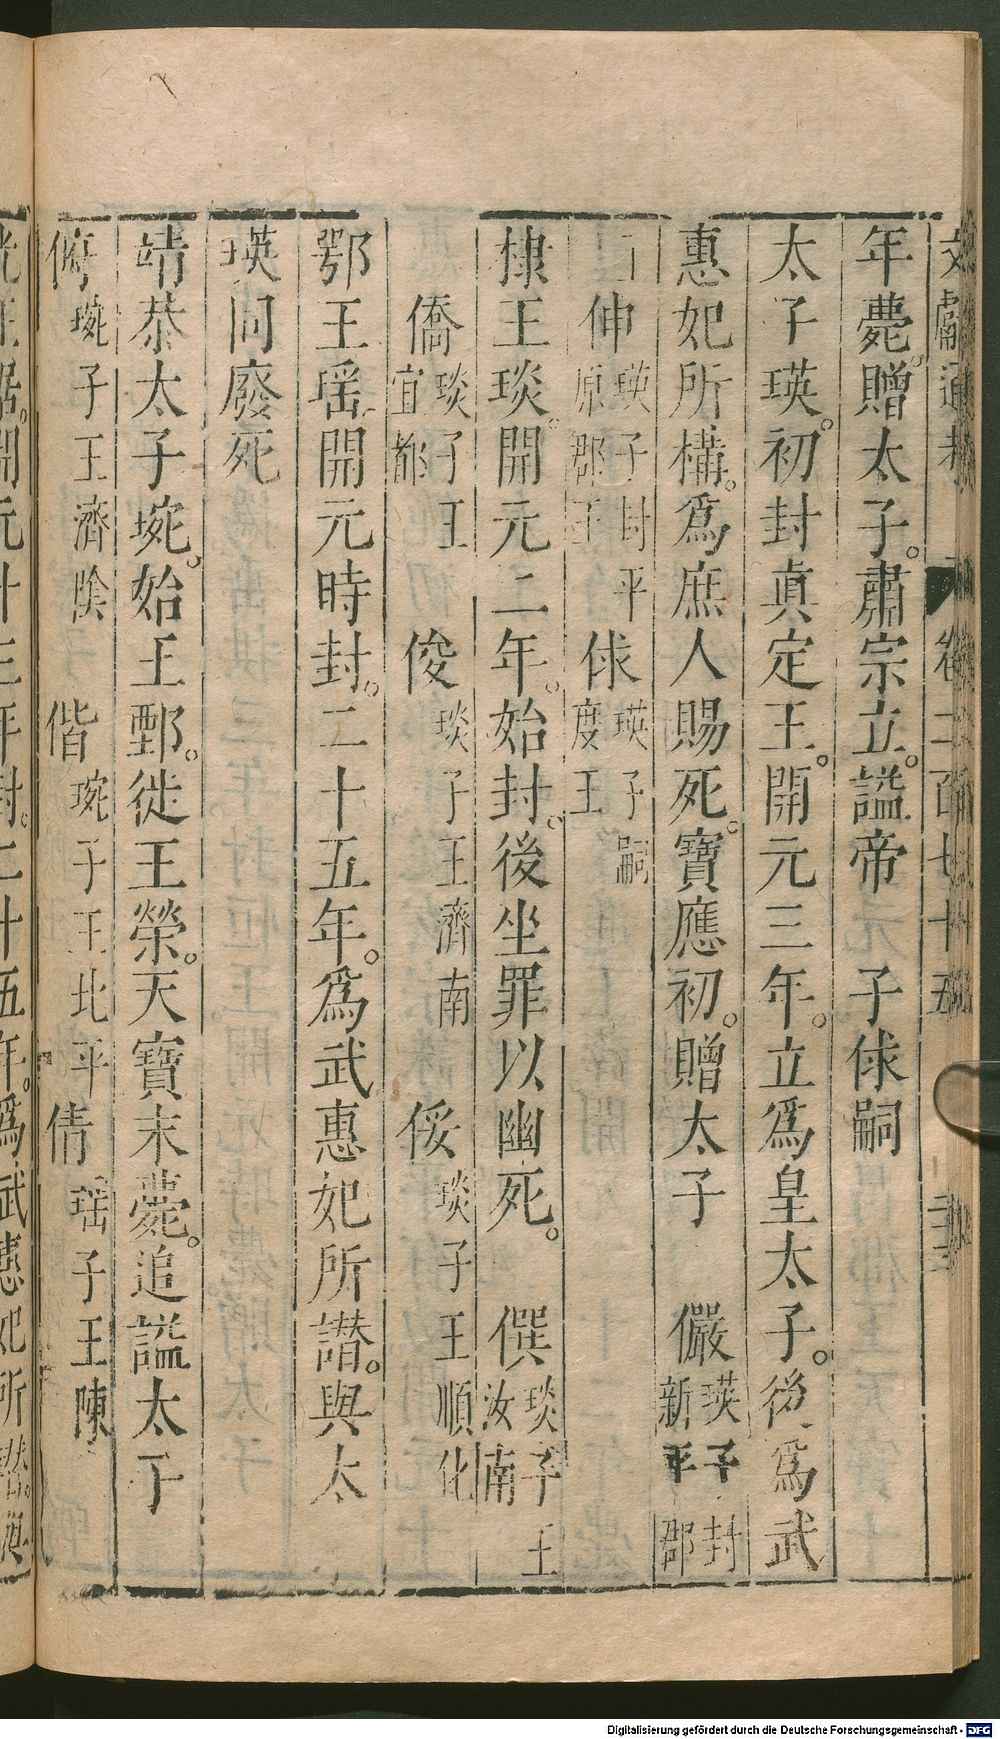 文獻通考 卷二百七十五
年薨。贈太子。肅宗立。謚帝 子俅嗣
太子瑛。初封眞定王。開元三年。立爲皇太子。後爲武
惠妃所構。爲庶人賜死。寶應初。贈太子 儼 瑛子封新平郡
王 伸 瑛子封平原郡王 俅 瑛子嗣度王
棣王琰。開元二年。始封。後坐罪以幽死。 僎 琰子王汝南
僑 琰子王宜都 俊 琰子王濟南 俀 琰子王順化
鄂王瑶。開元時封。二十五年。爲武惠妃所譖。與太
瑛同廢死
靖恭太子琬。始王鄄。徙王榮。天寶末薨。追謚太子
俯 琬子王濟陰 偕 琬子王北平 倩 瑶子王陳
光王琚。開元十三年封。二十五年。爲武惠妃所譖。
Digitalisierung gefördert durch die Deutsche Forschungsgemeinschaft - DFG